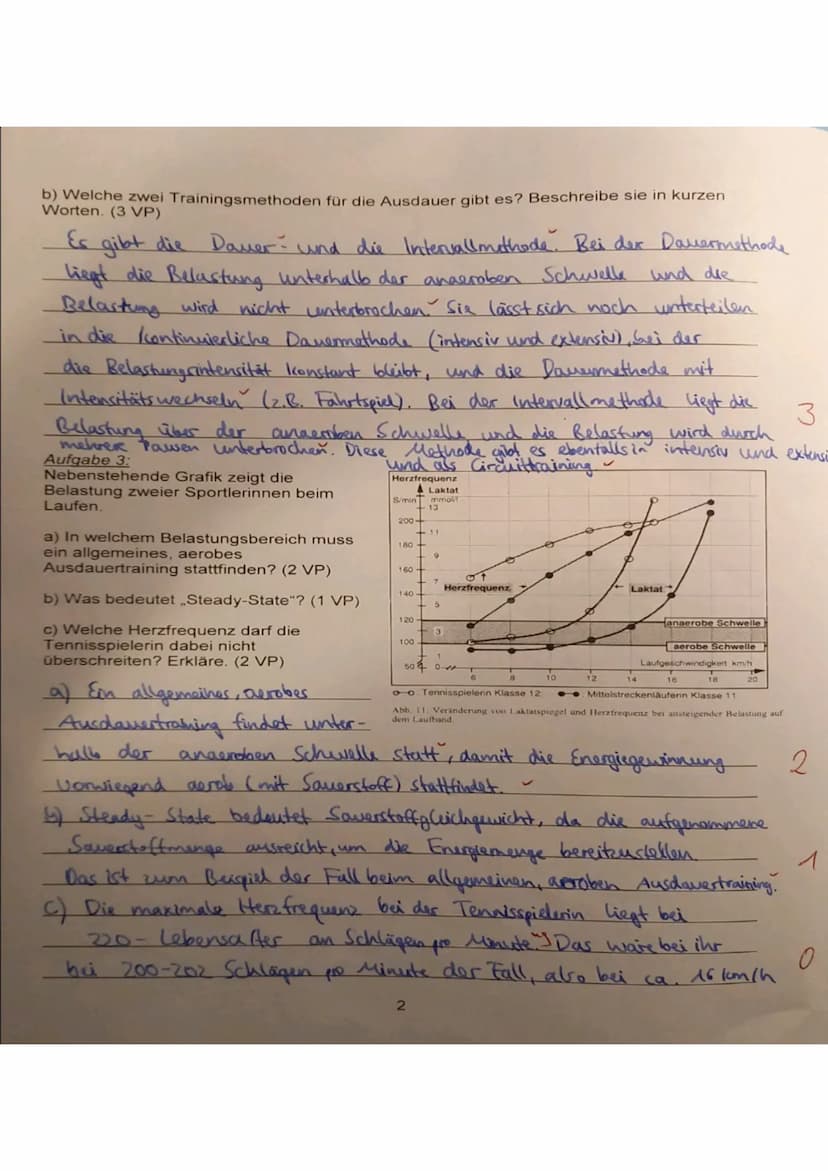 b) Welche zwei Trainingsmethoden für die Ausdauer gibt es? Beschreibe sie in kurzen
Worten. (3 VP)
Es gibt die Dauer- und die Intervallmethode. Bei der Dauermethode
liegt die Belastung unterhalb der anaeroben Schwelle und die
Belastung wird nicht unterbrochen. Sie lässt sich noch unterteilen
in die kontinuierliche Dauermethode (intensiv und extensiv), bei der
die Belastungsintensität konstant bleibt, und die Dauermethode mit
Intensitätswechseln (z.B. Fahrtspiel). Bei der Intervallmethode liegt die
Belastung über der anaeroben Schwelle und die Belastung wird durch
mehrere Pausen unterbrochen. Diese Methode gibt es ebenfalls in intensiv und extensi
und als Circuittraining
3
Aufgabe 3:
Nebenstehende Grafik zeigt die
Belastung zweier Sportlerinnen beim
Laufen.
a) In welchem Belastungsbereich muss
ein allgemeines, aerobes
Ausdauertraining stattfinden? (2 VP)
b) Was bedeutet „Steady-State"? (1 VP)
c) Welche Herzfrequenz darf die
Tennisspielerin dabei nicht
überschreiten? Erkläre. (2 VP)
Herzfrequenz
Laktat
S/min mmol/l
13
200
11
180
9
160
7
140
5
120
3
100
1
50 0
Herzfrequenz
Laktat
anaerobe Schwelle
aerobe Schwelle
Laufgeschwindigkeit km/h
6 8 10 12 14 16 18 20
Tennisspielerin Klasse 12 Mittelstreckenläuferin Klasse 11
Abb. 11: Veränderung von Laktatspiegel und Herzfrequenz bei ansteigender Belastung auf
dem Laufband.
a) Ein allgemeines, aerobes
Ausdauertraining findet unter-
halb der anaeroben Schwelle statt, damit die Energiegewinnung
vorwiegend aerob (mit Sauerstoff) stattfindet.
2
b) Steady-State bedeutet Sauerstoffgleichgewicht, da die aufgenommene
Sauerstoffmenge ausreicht, um die Energiemenge bereitzustellen.
Das ist zum Beispiel der Fall beim allgemeinen, aeroben Ausdauertraining.
1
c) Die maximale Herzfrequenz bei der Tennisspielerin liegt bei
220 - Lebensalter an Schlägen pro Minute. Das wäre bei ihr
bei 200-202 Schlägen pro Minute der Fall, also bei ca. 16 km/h
0
2